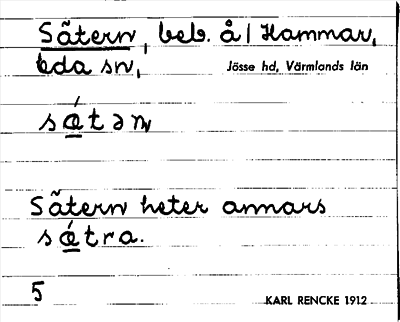 Sätern, beb. å / Hammar,
Eda sn, Jösse hd, Värmlands län
sǽtəɳ
Sätern heter annars
sǽtra.
5
KARL RENCKE 1912